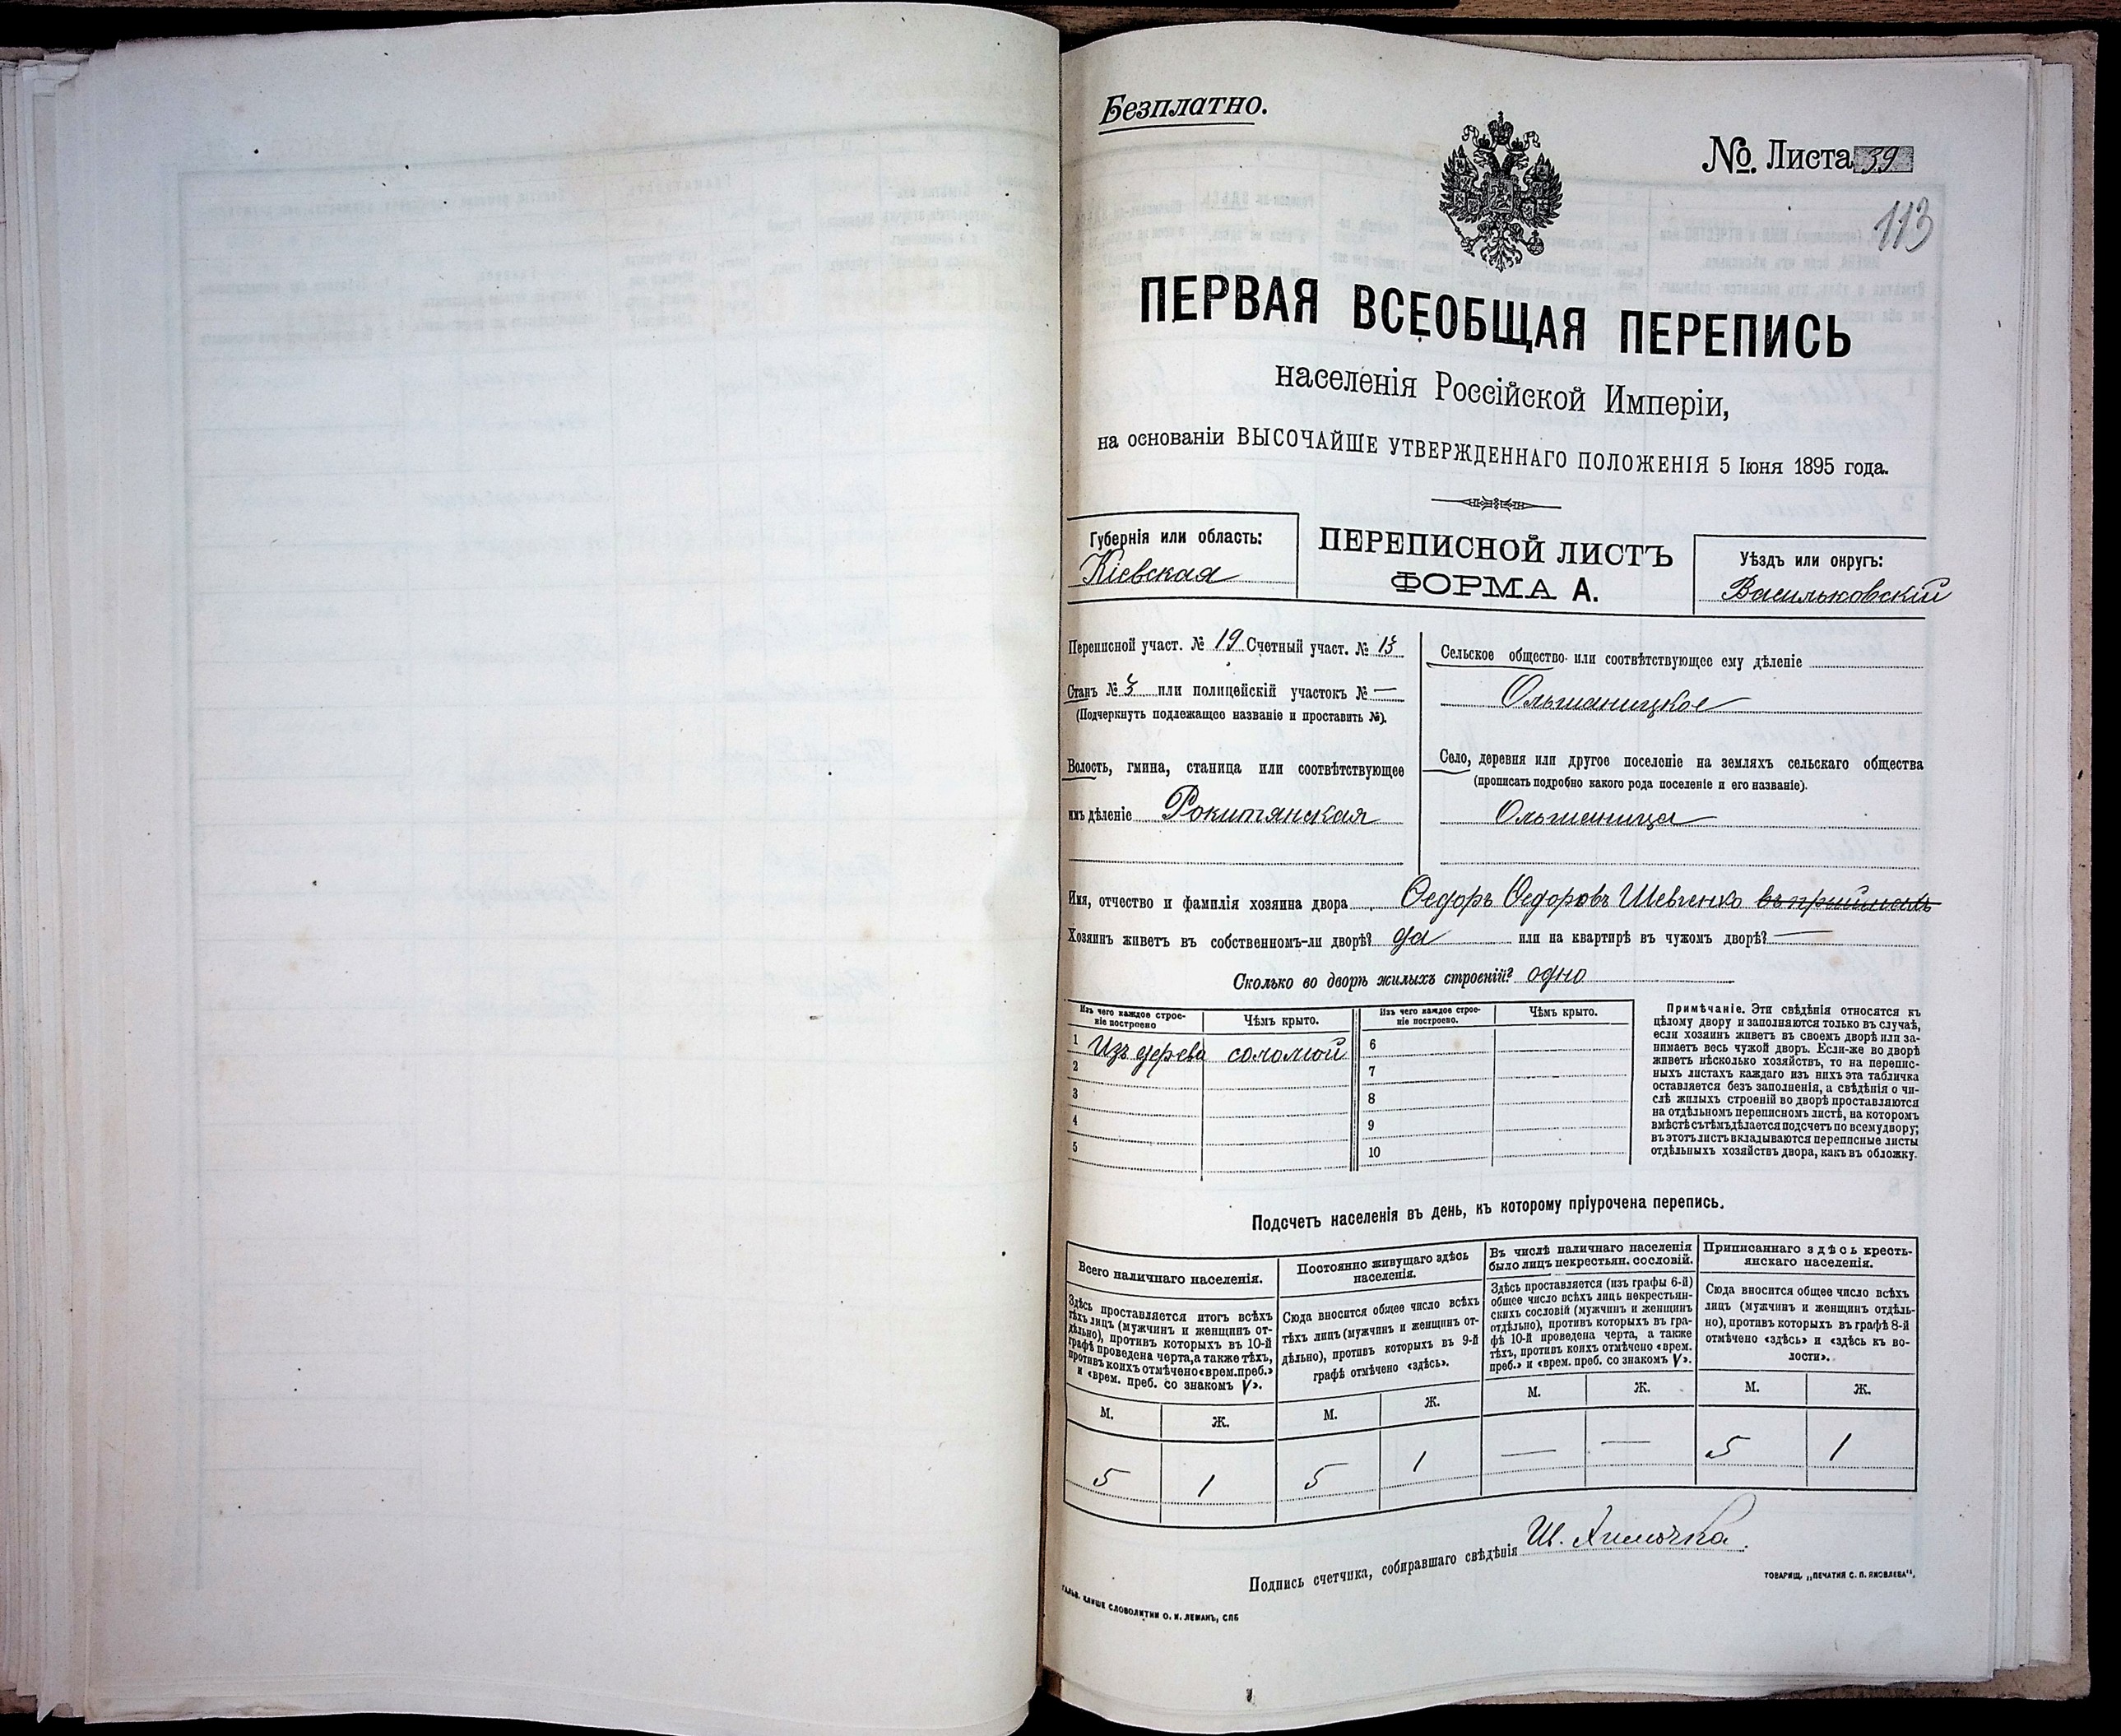 Безплатно.
№ Листа 39
113
ПЕРВАЯ ВСЕОБЩАЯ ПЕРЕПИСЬ
населенія Россійской Имперіи,
на основаніи ВЫСОЧАЙШЕ УТВЕРЖДЕННАГО ПОЛОЖЕНІЯ 5 Іюня 1895 года.
Губернія или область:
Кіевская
ПЕРЕПИСНОЙ ЛИСТЪ
ФОРМА А.
Уѣздъ или округъ:
Васильковскій
Переписной участ. № 19 Счетный участ. № 13
Станъ № 3 или полицейскій участокъ № —
(Подчеркнуть подлежащее названіе и проставить №).
Волость, гмина, станица или соотвѣтствующее
имъ дѣленіе Рокитянская
Сельское общество или соотвѣтствующее ему дѣленіе
Ольшаницкое
Село, деревня или другое поселеніе на земляхъ сельскаго общества
(прописать подробно какого рода поселеніе и его названіе).
Ольшаница
Имя, отчество и фамилія хозяина двора Ѳедоръ Ѳедоровъ Шевченко
Хозяинъ живетъ въ собственномъ-ли дворѣ? да или на квартирѣ въ чужомъ дворѣ? —
Сколько во дворѣ жилыхъ строеній? одно
Изъ чего каждое строе-
ніе построено
Чѣмъ крыто.
Изъ чего каждое строе-
ніе построено.
Чѣмъ крыто.
1 Изъ дерева соломой
2
3
4
5
6
7
8
9
10
Примѣчаніе. Эти свѣдѣнія относятся къ
цѣлому двору и заполняются только въ случаѣ,
если хозяинъ живетъ въ своемъ дворѣ или за-
нимаетъ весь чужой дворъ. Если-же во дворѣ
живетъ нѣсколько хозяйствъ, то на перепис-
ныхъ листахъ каждаго изъ нихъ эта табличка
оставляется безъ заполненія, а свѣдѣнія о чи-
слѣ жилыхъ строеній во дворѣ проставляются
на отдѣльномъ переписномъ листѣ, на которомъ
вмѣстѣ съ тѣмъ дѣлается подсчетъ по всему двору;
въ этотъ листъ вкладываются переписные листы
отдѣльныхъ хозяйствъ двора, какъ въ обложку.
Подсчетъ населенія въ день, къ которому пріурочена перепись.
Всего наличнаго населенія.
Здѣсь проставляется итогъ всѣхъ
тѣхъ лицъ (мужчинъ и женщинъ от-
дѣльно), противъ которыхъ въ 10-й
графѣ проведена черта, а также тѣхъ,
противъ коихъ отмѣчено «врем. преб.»
и «врем. преб. со знакомъ V».
М.
Ж.
5
1
Постоянно живущаго здѣсь
населенія.
Сюда вносится общее число всѣхъ
тѣхъ лицъ (мужчинъ и женщинъ от-
дѣльно), противъ которыхъ въ 9-й
графѣ отмѣчено «здѣсь».
М.
Ж.
5
1
Въ числѣ наличнаго населенія
было лицъ некрестьян. сословій.
Здѣсь проставляется (изъ графы 6-й)
общее число всѣхъ лицъ некрестьян-
скихъ сословій (мужчинъ и женщинъ
отдѣльно), противъ которыхъ въ гра-
фѣ 10-й проведена черта, а также
тѣхъ, противъ коихъ отмѣчено «врем.
преб.» и «врем. преб. со знакомъ V».
М.
Ж.
—
—
Приписаннаго здѣсь кресть-
янскаго населенія.
Сюда вносится общее число всѣхъ
лицъ (мужчинъ и женщинъ отдѣль-
но), противъ которыхъ въ графѣ 8-й
отмѣчено «здѣсь» и «здѣсь къ во-
лости».
М.
Ж.
5
1
Подпись счетчика, собиравшаго свѣдѣнія
ГАЛЬВ. КЛИШЕ СЛОВОЛИТНИ О. И. ЛЕМАНЪ, СПБ
ТОВАРИЩ. „ПЕЧАТНЯ С. П. ЯКОВЛЕВА".